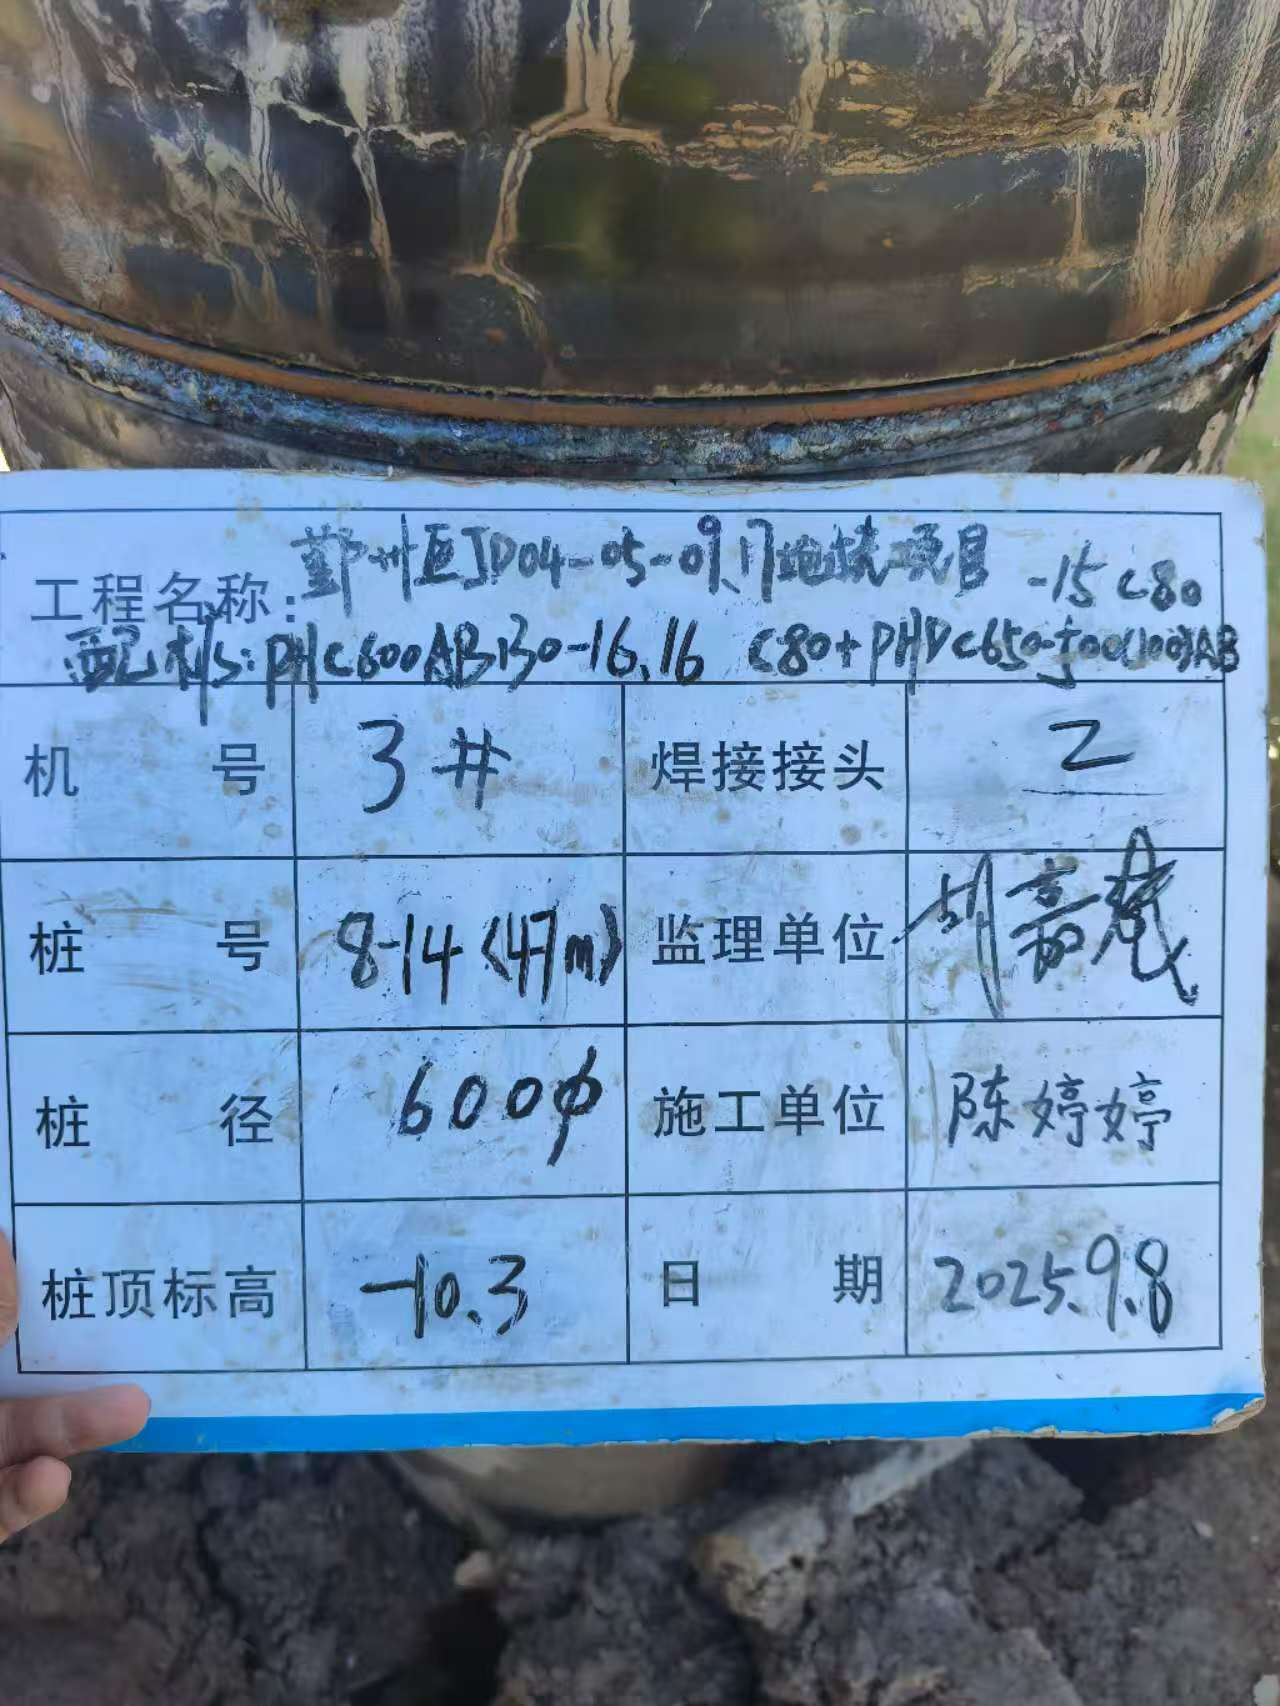 工程名称: 鄞州区JD04-05-09.17地块项目 -15 C80
配桩: PHC600AB130-16.16 C80+PHDC650-500(100)AB
机号 3# 焊接接头 2
桩号 8-14(47m) 监理单位 胡
桩径 600φ 施工单位 陈婷婷
桩顶标高 -10.3 日期 2025.9.8